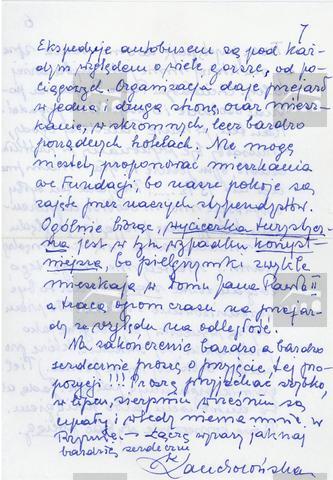 7
Ekspedycje autobusem są pod każ-
dym względem o wiele gorsze, od po-
ciągowych. Organizacja daje przejazd
w jedną i drugą stronę, oraz miesz-
kanie, w skromnych, lecz bardzo
porządnych hotelach. Nie mogą
niestety proponować mieszkania
we Fundacji, bo nasze pokoje są
zajęte przez naszych stypendystów.
Ogólnie biorąc, wycieczka turystycz-
na jest w tym wypadku korzyst-
niejsza, bo pielgrzymki zwykle
mieszkają w Domu Jana Pawła II
a tracą ogrom czasu na przejaz-
dy ze względu na odległość.
Na zakończenie bardzo a bardzo
serdecznie proszę o przyjęcie tej pro-
pozycji!!! Proszę przyjechać szybko,
w lipcu, sierpniu wrześniu są
upały i wtedy nie ma mnie w
Rzymie. – Łączę wyrazy jak naj
bardziej serdeczne
Lanckorońska